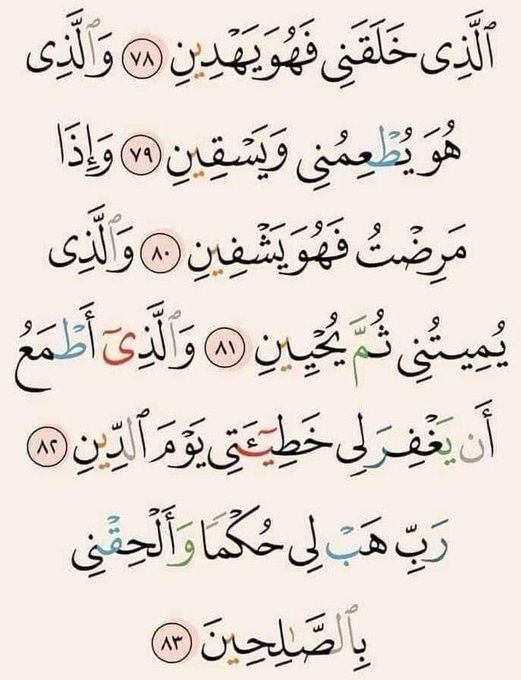 ٱلَّذِى خَلَقَنِى فَهُوَ يَهْدِينِ ٧٨ وَٱلَّذِى
هُوَ يُطْعِمُنِى وَيَسْقِينِ ٧٩ وَإِذَا
مَرِضْتُ فَهُوَ يَشْفِينِ ٨٠ وَٱلَّذِى
يُمِيتُنِى ثُمَّ يُحْيِينِ ٨١ وَٱلَّذِىٓ أَطْمَعُ
أَن يَغْفِرَ لِى خَطِيٓـَٔتِى يَوْمَ ٱلدِّينِ ٨٢
رَبِّ هَبْ لِى حُكْمًا وَأَلْحِقْنِى
بِٱلصَّـٰلِحِينَ ٨٣